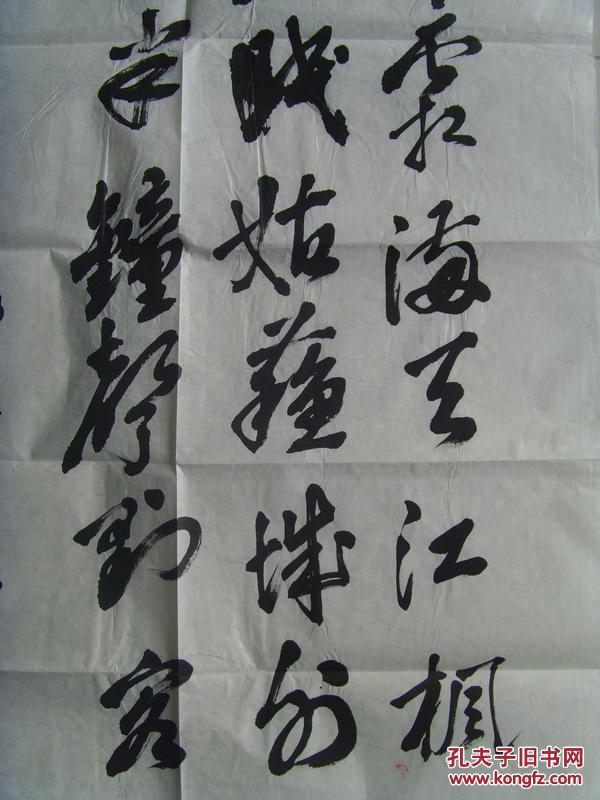 霜满天江枫
眠姑苏城外
半钟声到客
孔夫子旧书网
www.kongfz.com